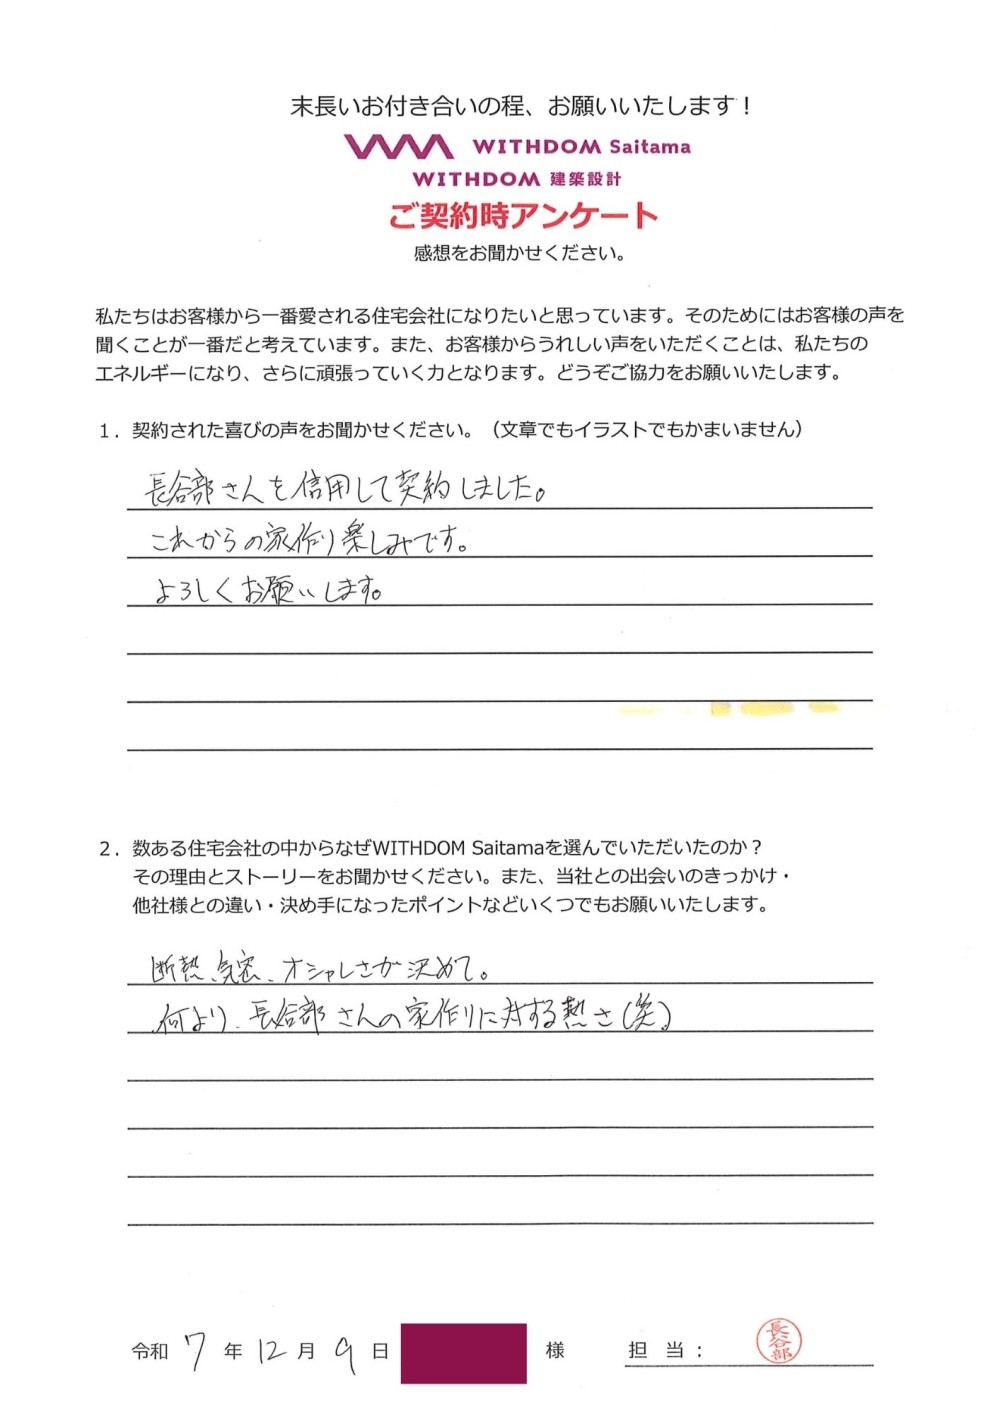 末長いお付き合いの程、お願いいたします！
WITHDOM Saitama
WITHDOM 建築設計
ご契約時アンケート
感想をお聞かせください。
私たちはお客様から一番愛される住宅会社になりたいと思っています。そのためにはお客様の声を
聞くことが一番だと考えています。また、お客様からうれしい声をいただくことは、私たちの
エネルギーになり、さらに頑張っていく力となります。どうぞご協力をお願いいたします。
１．契約された喜びの声をお聞かせください。（文章でもイラストでもかまいません）
長谷部さんを信用して契約しました。
これからの家作り楽しみです。
よろしくお願いします。
２．数ある住宅会社の中からなぜWITHDOM Saitamaを選んでいただいたのか？
その理由とストーリーをお聞かせください。また、当社との出会いのきっかけ・
他社様との違い・決め手になったポイントなどいくつでもお願いいたします。
断熱、気密、オシャレさが決めて。
何より、長谷部さんの家作りに対する熱さ（笑）
令和 7 年 12 月 9 日 様 担 当 ： 長谷部